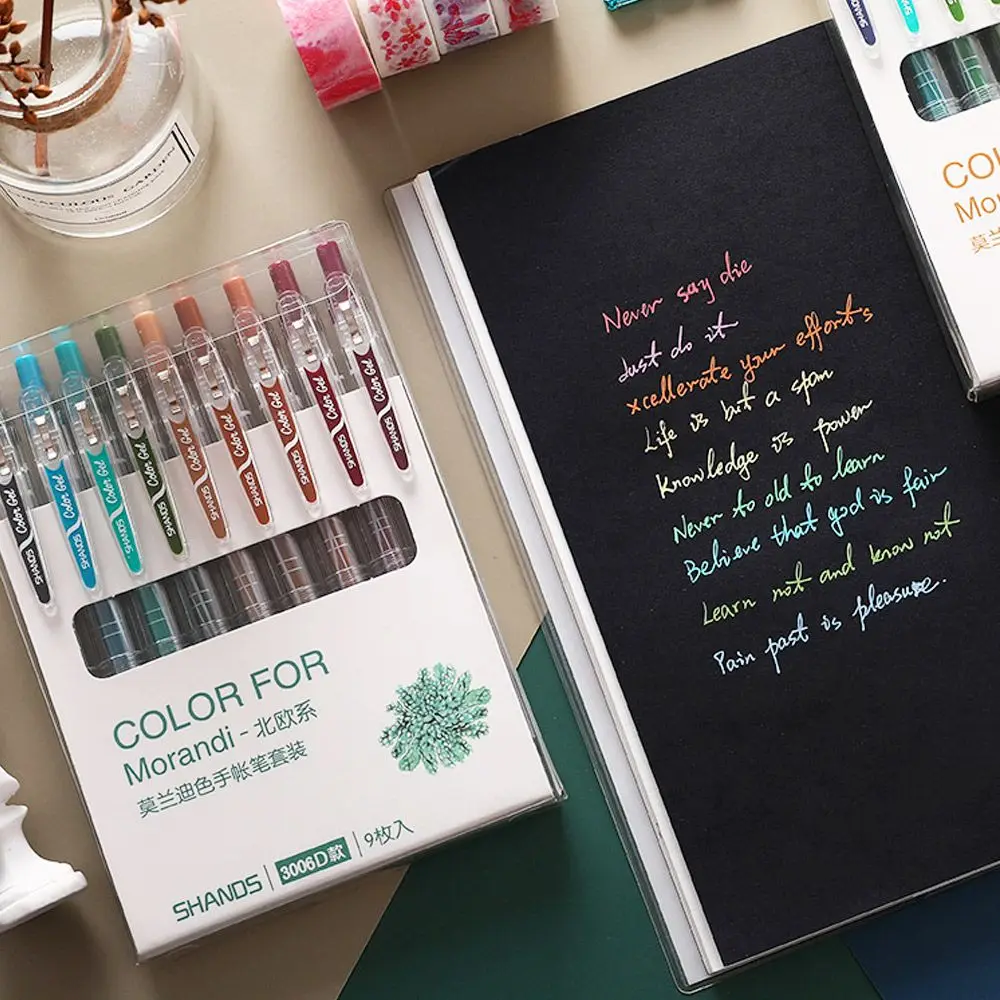 RACULOUS GARDEN
Never say die
Just do it
xcellerate your efforts
Life is but a span
Knowledge is power
Never to old to learn
Believe that god is fair
Learn not and know not
Pain past is pleasure.
Color Gel SHANDS
Color Gel SHANDS
Color Gel SHANDS
Color Gel SHANDS
Color Gel SHANDS
Color Gel SHANDS
Color Gel SHANDS
Color Gel SHANDS
Color Gel SHANDS
COLOR FOR
Morandi - 北欧系
莫兰迪色手帐笔套装
SHANDS | 3006D款 | 9枚入
SHANDS
SHANDS
SHANDS
SHANDS
COL
Mor
莫兰